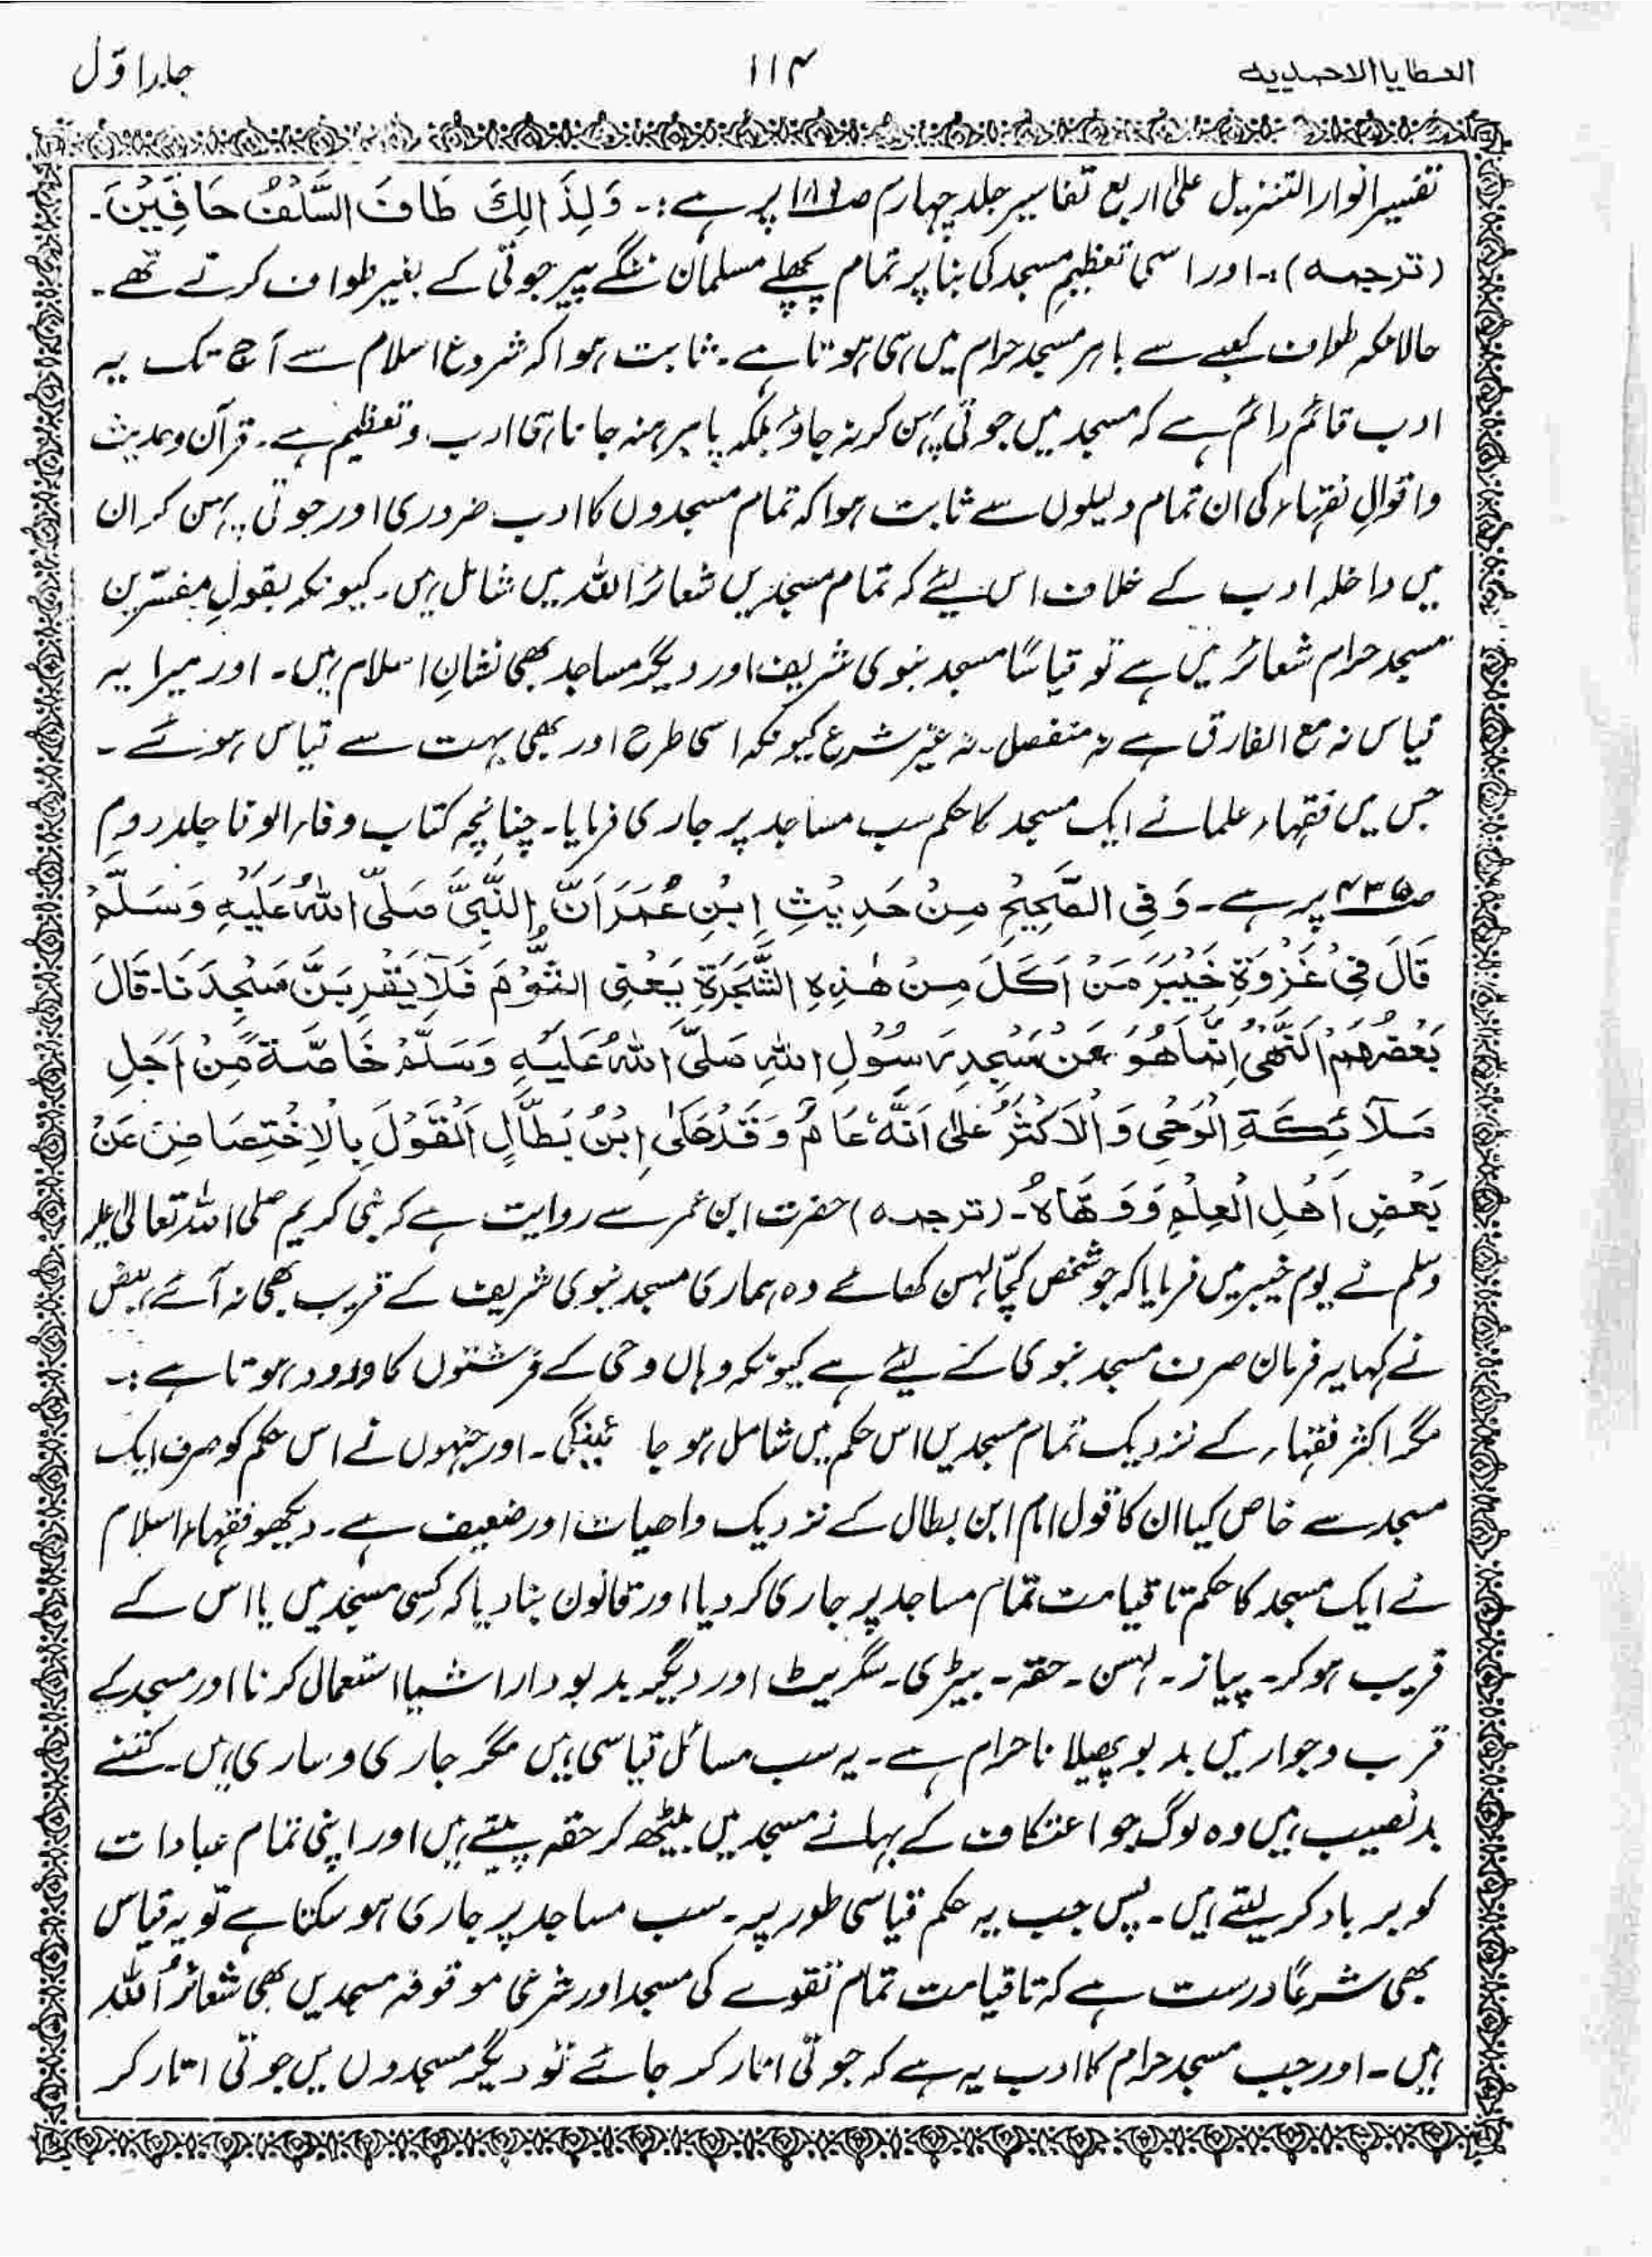 العطایا الاحمدیہ
۱۱۴
جلد اوّل
تفسیر انوار التنزیل علیٰ اربع تفاسیر جلد چہارم صـ۱۸۶ پر ہے:۔ وَلِذَالِكَ طَافَ السَّلَفُ حَافِيْنَ۔
(ترجمہ)؛۔ اور اسی تعظیمِ مسجد کی بنا پر تمام پچھلے مسلمان ننگے پیر جوتی کے بغیر طواف کرتے تھے۔
حالانکہ طواف کعبے سے باہر مسجد حرام میں ہی ہوتا ہے۔ ثابت ہوا کہ شروع اسلام سے آج تک یہ
ادب قائم دائم ہے کہ مسجد میں جوتی پہن کر نہ جاؤ بلکہ پا برہنہ جانا ہی ادب و تعظیم ہے۔ قرآن و حدیث
و اقوالِ فقہاء کی ان تمام دلیلوں سے ثابت ہوا کہ تمام مسجدوں کا ادب ضروری اور جوتی پہن کر ان
میں داخلہ ادب کے خلاف اس لیئے کہ تمام مسجدیں شعائر اللہ میں شامل ہیں۔ کیونکہ بقولِ مفسّرین
مسجد حرام شعائر میں ہے تو قیاسًا مسجد نبوی شریف اور دیگر مساجد بھی نشانِ اسلام ہیں۔ اور میرا یہ
قیاس نہ مع الفارق ہے نہ منفصل۔ نہ غیر شرع کیونکہ اسی طرح اور بھی بہت سے قیاس ہوئے۔
جس میں فقہاء علما نے ایک مسجد کا حکم سب مساجد پر جاری فرمایا۔ چنانچہ کتاب وفاء الوفا جلد دوم
صـ۴۳۵ پر ہے۔ وَفِى الصَّحِيْحِ مِنْ حَدِيْثِ اِبْنِ عُمَرَ اَنَّ النَّبِىَّ صَلَّى اللهُ عَلَيْهِ وَسَلَّمْ
قَالَ فِىْ غَزْوَةِ خَيْبَرَ مَنْ اَكَلَ مِنْ هٰذِهِ الشَّجَرَةِ يَعْنِى الثَّوْمَ فَلَا يَقْرِبَنَّ مَسْجِدَنَا۔ قَالَ
بَعْضُهُمْ اَلنَّهْىُ اِنَّمَا هُوَ عَنْ مَسْجِدِ رَسُوْلِ اللهِ صَلَّى اللهُ عَلَيْهِ وَسَلَّمْ خَاصَّةً مِّنْ اَجَلِ
مَلَآئِكَةِ الْوَحْىِ وَالْاَكْثَرُ عَلىٰ اَنَّهُ عَامٌ وَقَدْ حَكٰى اِبْنُ بَطَّالٍ اَلْقَوْلَ بِالْاِخْتِصَاصِ عَنْ
بَعْضِ اَهْلِ الْعِلْمِ وَوَهَّاهُ۔ (ترجمہ) حضرت ابن عمر سے روایت ہے کہ نبی کریم صلی اللہ تعالیٰ علیہ
وسلم نے یوم خیبر میں فرمایا کہ جو شخص کچّا لہسن کھائے وہ ہماری مسجد نبوی شریف کے قریب بھی نہ آئے، بعض
نے کہا یہ فرمان صرف مسجد نبوی کے لیئے ہے کیونکہ وہاں وحی کے فرشتوں کا ورود ہوتا ہے:۔
مگر اکثر فقہاء کے نزدیک تمام مسجدیں اس حکم میں شامل ہو جا ئینگی۔ اور جنہوں نے اس حکم کو صرف ایک
مسجد سے خاص کیا ان کا قول امام ابن بطال کے نزدیک واھیات اور ضعیف ہے۔ دیکھو فقہاء اسلام
نے ایک مسجد کا حکم تا قیامت تمام مساجد پر جاری کر دیا اور قانون بنا دیا کہ کسی مسجد میں یا اس کے
قریب ہو کر۔ پیاز۔ لہسن۔ حقہ۔ بیڑی۔ سگریٹ اور دیگر بدبو دار اشیا استعمال کرنا اور مسجد کے
قرب و جوار میں بدبو پھیلانا حرام ہے۔ یہ سب مسائل قیاسی ہیں مگر جاری و ساری ہیں۔ کتنے
بدنصیب ہیں وہ لوگ جو اعتکاف کے بہانے مسجد میں بیٹھ کر حقہ پیتے ہیں اور اپنی تمام عبادات
کو برباد کر لیتے ہیں۔ پس جب یہ حکم قیاسی طور پر۔ سب مساجد پر جاری ہو سکتا ہے تو یہ قیاس
بھی شرعًا درست ہے کہ تا قیامت تمام تقوے کی مسجد اور شرعی موقوفہ مسجدیں بھی شعائرُ اللہ
ہیں۔ اور جب مسجد حرام کا ادب یہ ہے کہ جوتی اتار کر جائے تو دیگر مسجدوں میں جوتی اتار کر